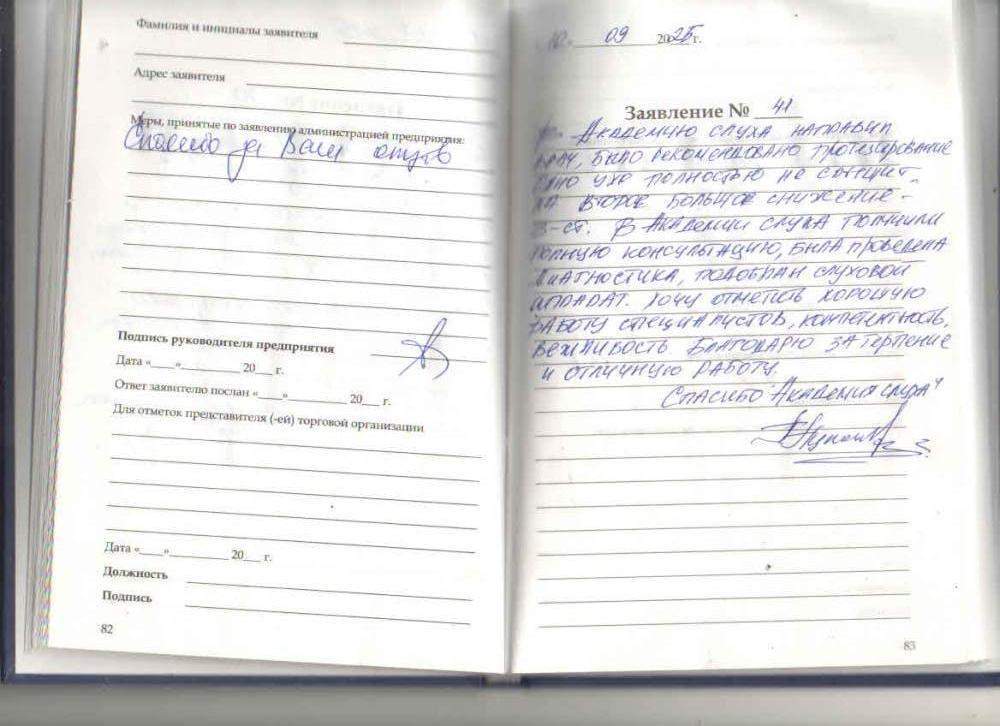 Фамилия и инициалы заявителя
Адрес заявителя
Меры, принятые по заявлению администрацией предприятия:
Спасибо за Ваш отзыв
Подпись руководителя предприятия
Дата «____»__________ 20___ г.
Ответ заявителю послан «____»__________ 20___ г.
Для отметок представителя (-ей) торговой организации
Дата «____»__________ 20___ г.
Должность
Подпись
82
09 2025 г.
Заявление № 41
Академию слуха направил
врач, было рекомендовано протезирование
ухо полностью не слышит
второе большое снижение -
3-ст. В Академии слуха получили
полную консультацию, была проведена
диагностика, подобран слуховой
аппарат. Хочу отметить хорошую
работу специалистов, компетентность,
вежливость. Благодарю за терпение
и отличную работу.
Спасибо "Академия слуха"
83